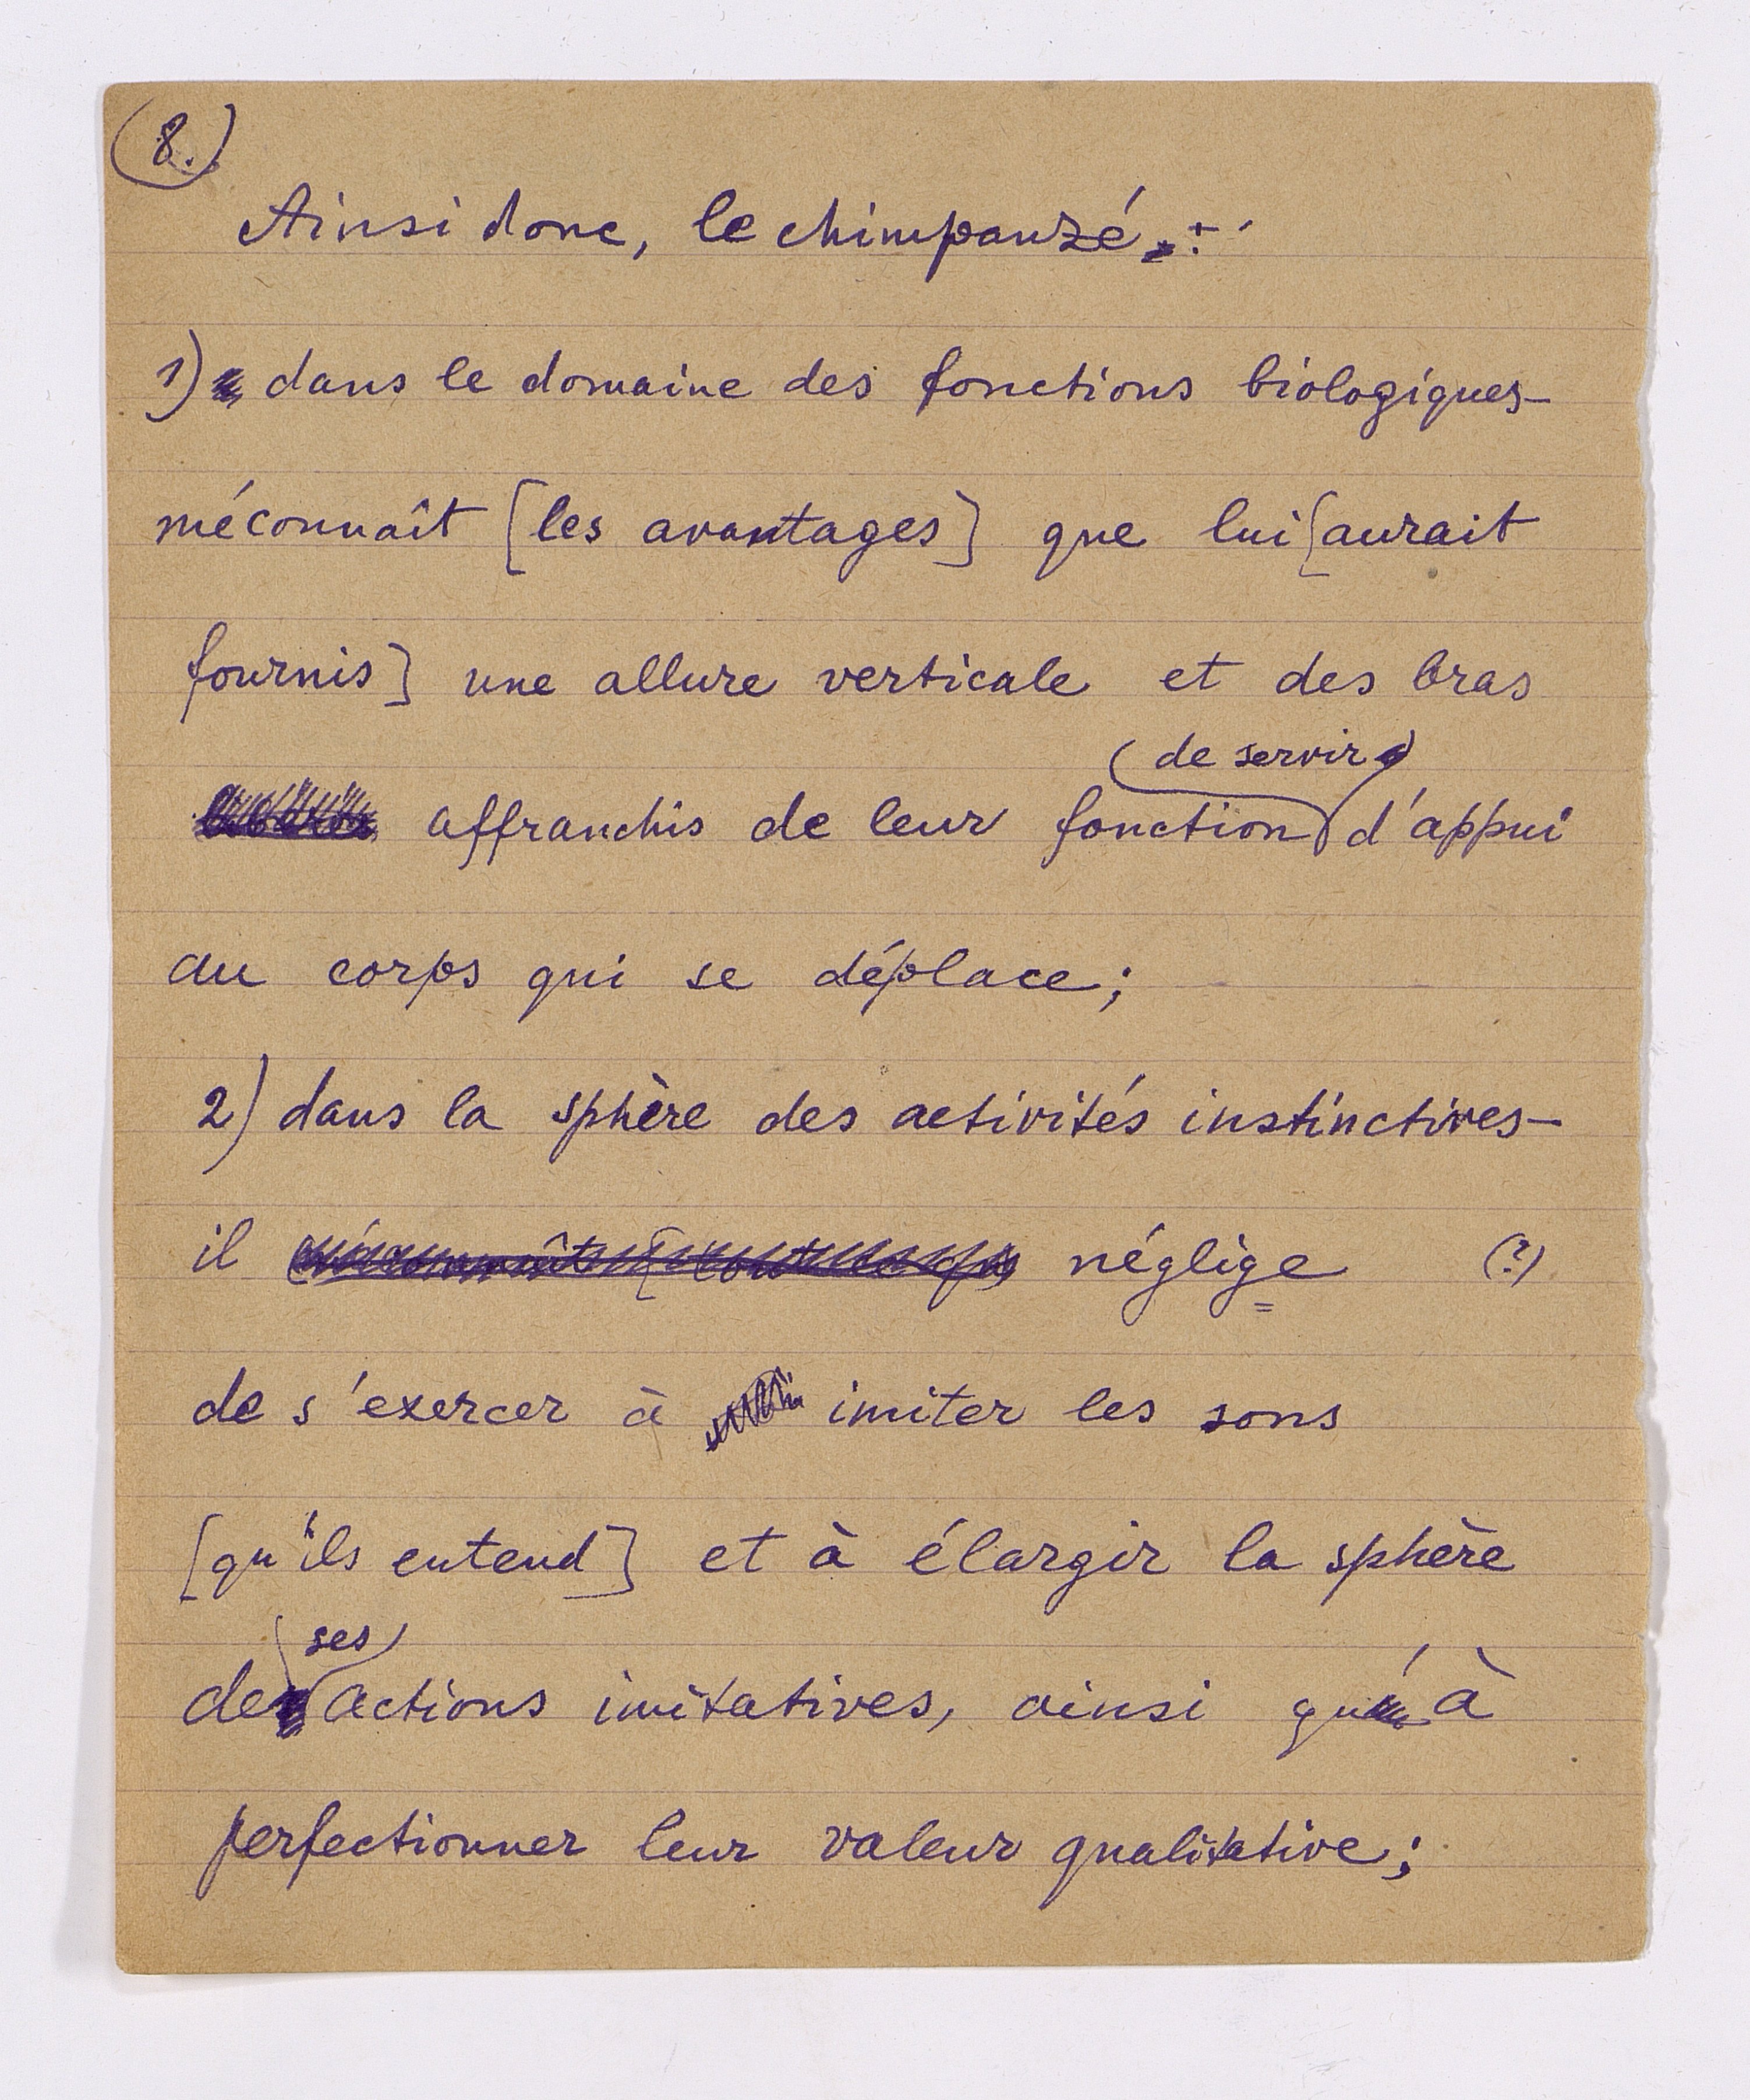 (8.)
Ainsi donc, le chimpanzé :
1) dans le domaine des fonctions biologiques –
méconnaît [les avantages] que lui [aurait
fournis] une allure verticale et des bras
(de servir)
affranchis de leur fonction d'appui
au corps qui se déplace;
2) dans la sphère des activités instinctives –
il néglige (?)
de s'exercer à imiter les sons
[qu'ils entend] et à élargir la sphère
ses
de actions imitatives, ainsi qu'à
perfectionner leur valeur qualitative;